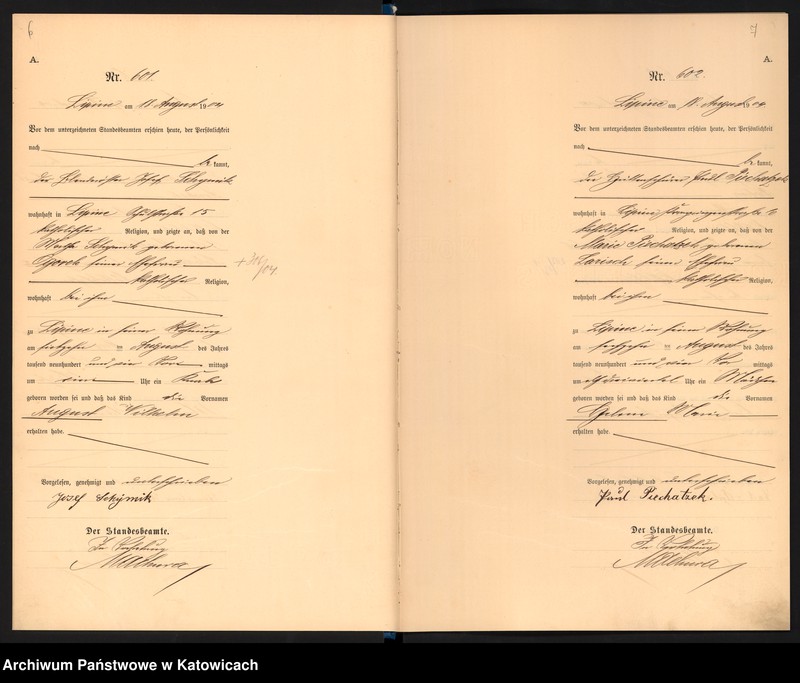 6
A.
Nr. 601.
Lipine am 18. August 1904
Vor dem unterzeichneten Standesbeamten erschien heute, der Persönlichkeit
nach
be kannt,
der Josef Schymik
wohnhaft in Lipine 15
katholischer Religion, und zeigte an, daß von der
Schymik geborenen
seiner Ehefrau
katholischer Religion,
wohnhaft bei ihm
zu Lipine in seiner Wohnung
am August des Jahres
tausend neunhundert und vier Vor mittags
um Uhr ein Knabe
geboren worden sei und daß das Kind die Vornamen
August Wilhelm
erhalten habe.
Vorgelesen, genehmigt und unterschrieben
Josef Schymik
Der Standesbeamte.
In Vertretung
7
A.
Nr. 602.
Lipine am 18. August 1904
Vor dem unterzeichneten Standesbeamten erschien heute, der Persönlichkeit
nach
be kannt,
der Paul Piechatzek
wohnhaft in Lipine
katholischer Religion, und zeigte an, daß von der
Marie Piechatzek geborenen
Larisch seiner Ehefrau
katholischer Religion,
wohnhaft bei ihm
zu Lipine in seiner Wohnung
am August des Jahres
tausend neunhundert und vier Vor mittags
um Uhr ein Mädchen
geboren worden sei und daß das Kind die Vornamen
Helene Marie
erhalten habe.
Vorgelesen, genehmigt und unterschrieben
Paul Piechatzek.
Der Standesbeamte.
In Vertretung
Archiwum Państwowe w Katowicach